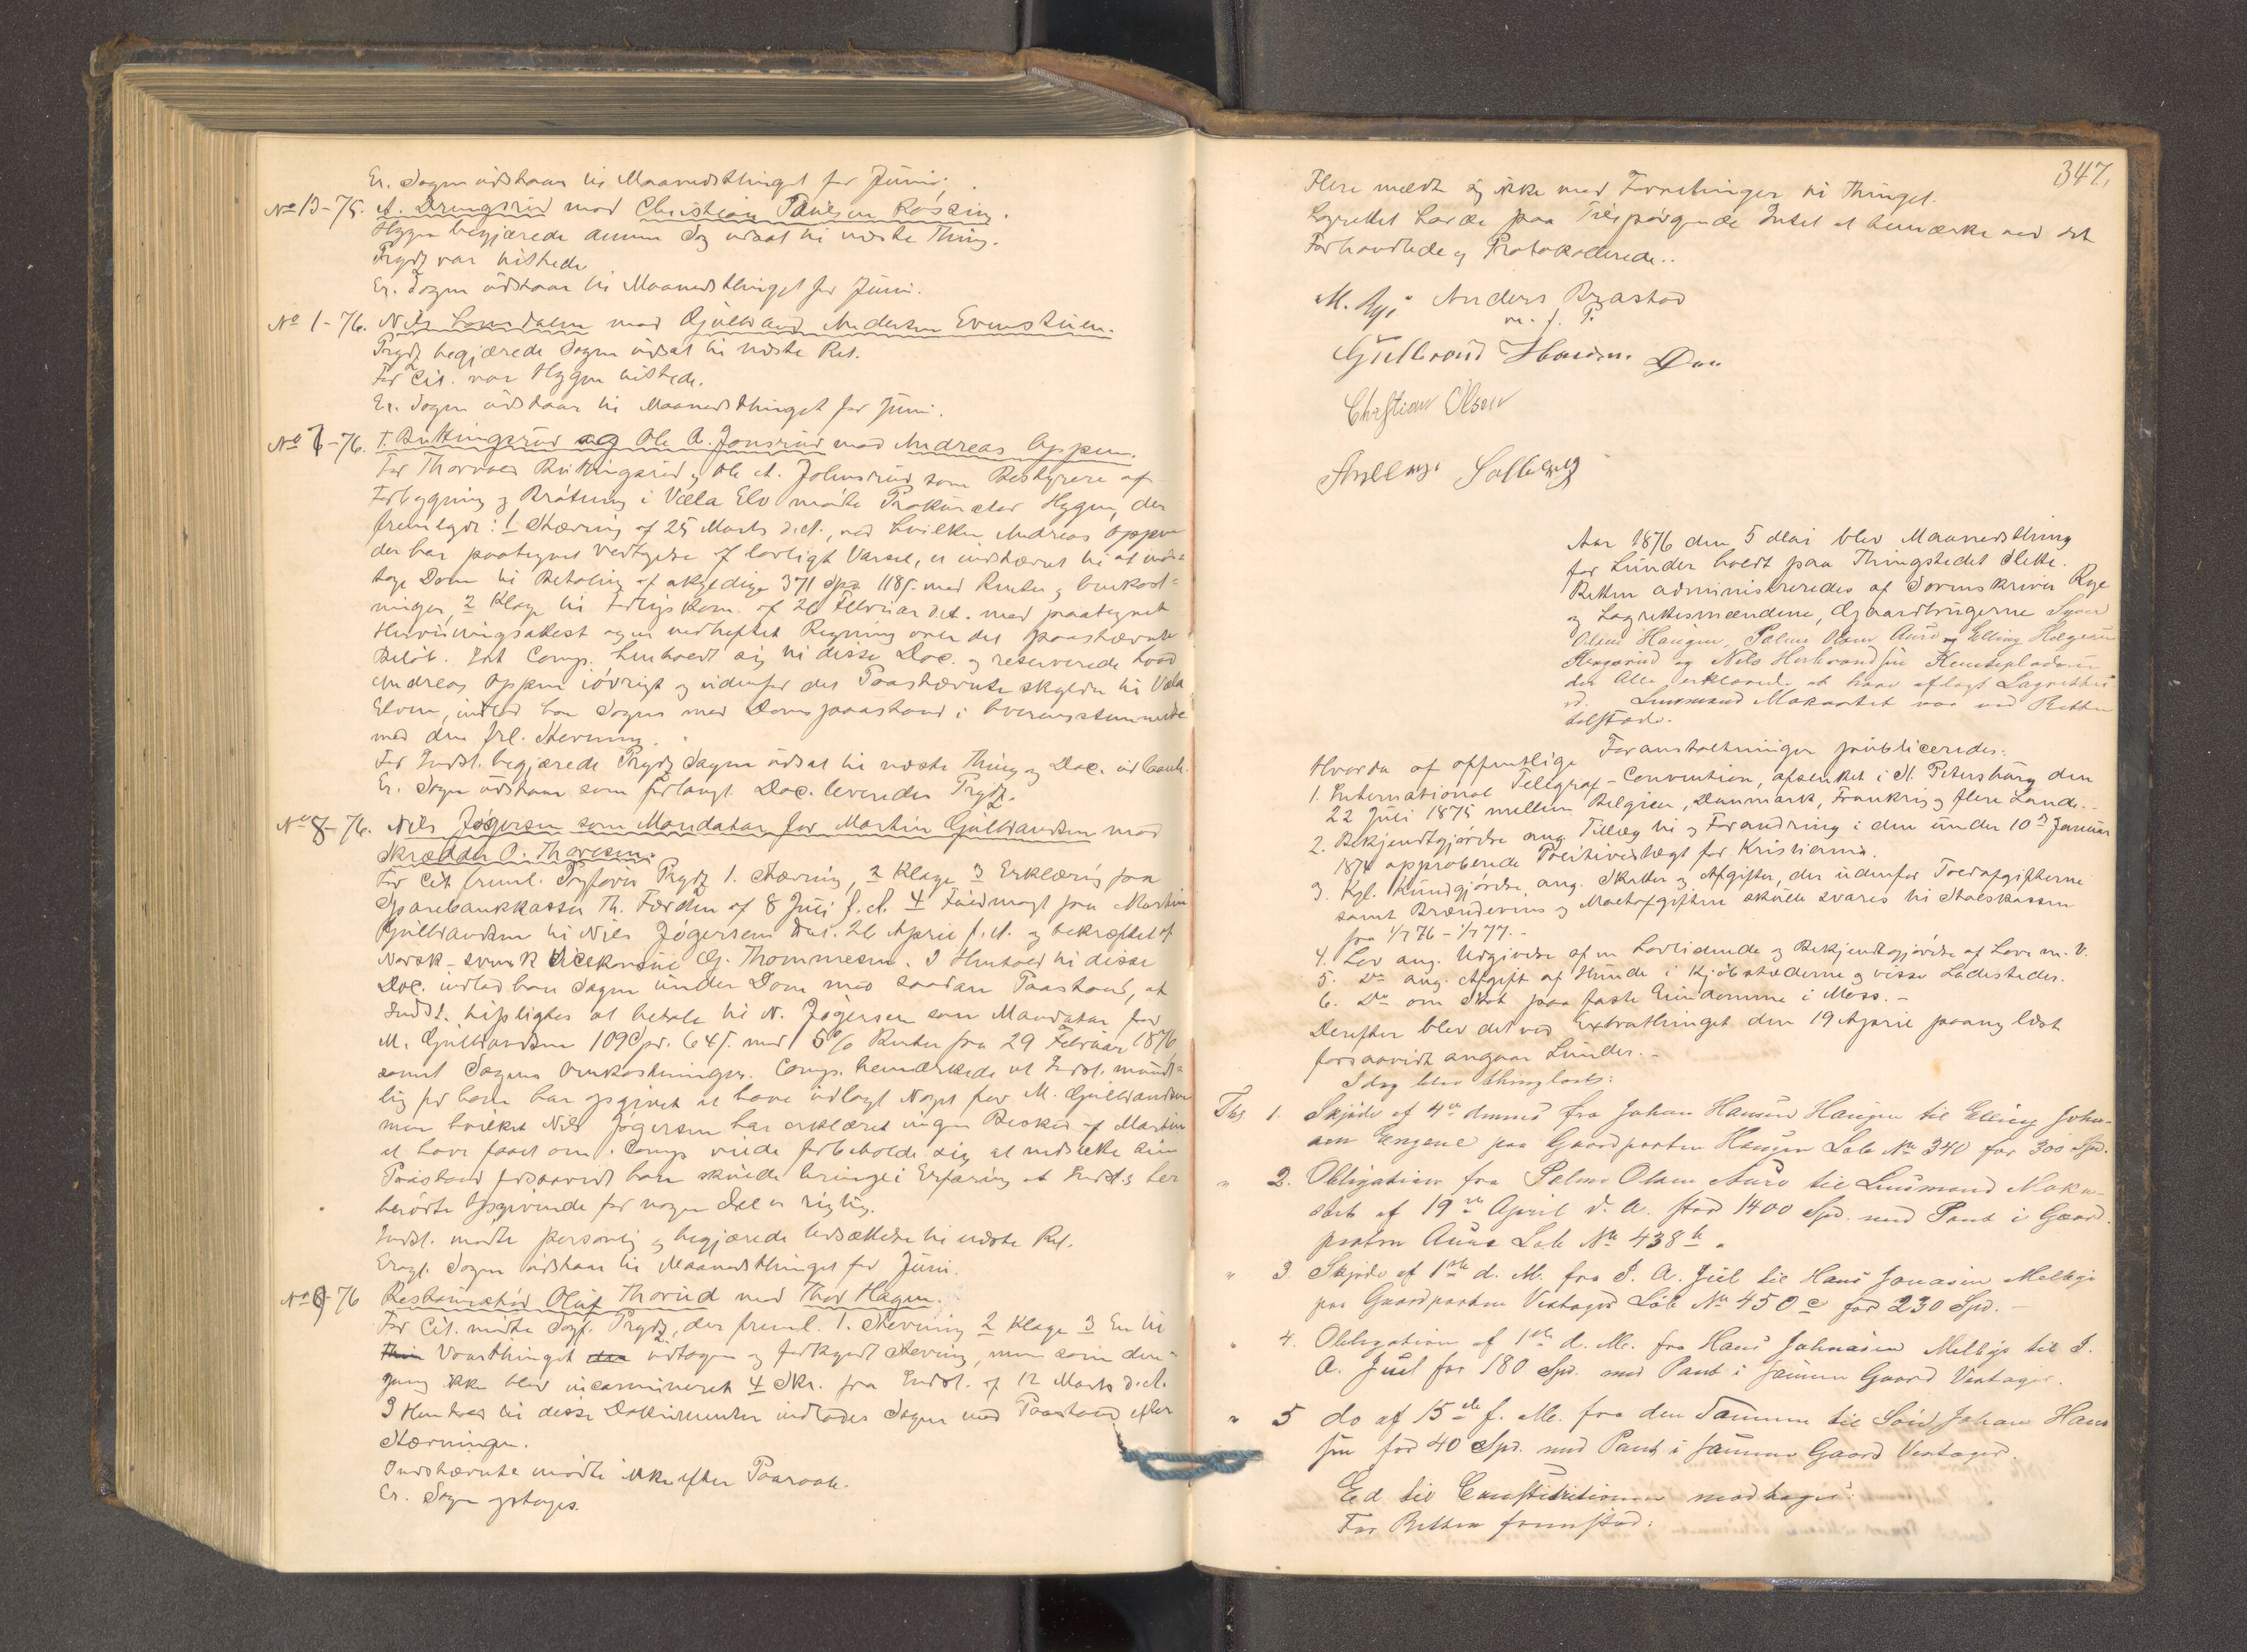 Er. Sagen udstaaer til Maanedsthinget for Juni.
No 13-75. A. Drengsrud mod Christian Paulsen Røssing.
Hygen begjærede denne Sag udsat til næste Thing.
Prydz var tilstede
Er. Sagen udstaaer til Maanedsthinget for Juni.
No 1-76. Nils mod Gulbrand Andersen Evenstuen.
Prydz begjærede Sagen udsat til næste Ret.
For Cit. var Hygen tilstede.
Er. Sagen udstaaer til Maanedsthinget for Juni.
No 6-76. T. Buttingsrud og Ole A. Jonsrud mod Andreas Oppen.
For Thorvald Buttingsrud og Ole A. Johnsrud som Bestyrere af
Forbygning og Brøtning i Væla Elv mødte Prokurator Hygen, der
fremlagde: 1 Stævning af 25 Marts d.A., ved hvilken Andreas Oppen
der har paategnet Vedtagelse af lovligt Varsel, er indstævnet til at mod-
tage Dom til Betaling af skyldige 371 Spd. 118 s. med Renter og Omkost-
ninger, 2 Klage til Forligskom. af 26 Februar d.A. med paategnet
Henvisningsattest og en vedheftet Regning over det paastævnte
Beløb. I Comp. henholdt sig til disse Doc. og reserverede hvad
Andreas Oppen iøvrigt og udenfor det Paastævnte skylder til Væla
Elven, indlod han Sagen med Doms paastand i Overensstemmelse
med den frl. Stevning.
For Indst. begjærede Prydz Sagen udsat til næste Thing og Doc. udlaant.
Er. Sagen udstaaer som forlangt. Doc. leveredes Prydz.
No 8-76. Nils Jøgersen som Mandatar for Martin Gulbrandsen mod
Skrædder O. Thoresen.
For Cit. freml. Sagfører Prydz 1. Stævning, 2 Klage 3 Erklæring fra
Sparebankkasser Th. Førden af 8 Juli f.A. 4 Fuldmagt fra Martin
Gulbrandsen til Nils Jøgersen dat. 26 April f.A. og bekræftet af
Norsk-svensk Vicekonsul G. Thommesen. I Henhold til disse
Doc. indlod han Sagen under Dom med saadan Paastand, at
Indst. tilpligtes at betale til N. Jøgersen som Mandatar for
M. Gulbrandsen 109 Spd. 64 s. med 5% Renter fra 29 Februar 1876
samt Sagens Omkostninger. Comp. bemærkede at Indst. mundt-
lig for ham har opgivet at have udlagt Noget for M. Gulbrandsen
men hvilket Nils Jøgersen har erklæret ingen Besked af Martin
at have faaet om. Comp. vilde forbeholde sig at nedsætte sin
Paastand forsaavidt han skulde bringe i Erfaring at Indst.s her
berørte Opgivende for nogen Del er rigtig.
Indst. mødte personlig og begjærede Udsættelse til næste Ret.
Eragt. Sagen udstaaer til Maanedsthinget for Juni.
No 9-76 Restauratør Oluf Thorud mod Thor Hagen.
For Cit. mødte Sagf. Prydz, der freml. 1. Stevning 2 Klage 3 En til
Vaarthinget udtagen og forkyndt Stevning, men som den-
gang ikke blev incamineret 4 Skr. fra Indst. af 12 Marts d.A.
I Henhold til disse Dokumenter indlodes Sagen med Paastand efter
Stævningen.
Indstævnte mødte ikke efter Paaraab.
Er. Sagen optages.
347.
Flere meldte sig ikke med Forretninger til Thinget.
Lagrettet havde paa Tilspørgende Intet at bemærke ved det
Forhandlede og Protokollerede..
M. Rye Anders Brastad
m. f. P.
Gulbrand Hansen
Christian Olsen
Solberg
Aar 1876 den 5 Mai blev Maanedsthing
for Lunder holdt paa Thingstedet Slette.
Retten administreredes af Sorenskriver Rye
og Lagrettesmændene, Gaardbrugerne Syver
Olsen Haugen, Palme Olsen Aurs og Elling Helgesen
og Nils Herbrandsen
der Alle erklærede at have aflagt Lagrettes
ed. Lensmand Makastet var ved Retten
tilstæde.
Hvorda af offentlige Foranstaltninger publiceredes:
1. International Telegraf-Convention, afsluttet i St. Petersburg den
22 Juli 1875 mellem Belgien, Danmark, Frankrig og flere Lande.
2. Bekjendtgjørelse ang. Tillæg til og Forandring i den under 10de Januar
1874 approberede Politivedtægt for Kristiania.
3. Kgl. Kundgjørelse ang. Skatter og Afgifter, der udenfor Toldafgifterne
samt Brændevins og Maltafgiften skulle svares til Statskassen
fra 1/7 76 - 1/7 77.
4. Lov ang. Udgivelse af en Lovtidende og Bekjendtgjørelse af Love m.V.
5. Do ang. Afgift af Hunde i Kjøbstæderne og visse Ladesteder.
6. Do om Skat paa faste Eiendomme i Moss.
Derefter blev det ved Extrathinget den 19 April paany læst
forsaavidt angaar Lunder.
Idag blev thinglæst:
Ths 1. Skjøde af 4de dennes fra Johan Hansen Haugen til Elling Johan-
sen Engene paa Gaardparten Haugen Løb No 340 for 300 Spd.
" 2. Obligation fra Palme Olsen Aurs til Lensmand Maka-
stet af 19de April d. A. stor 1400 Spd. med Pant i Gaard-
parten Aurs Løb No 438 b.
" 3. Skjøde af 1ste d. M. fra I. A. Juel til Hans Jonasen Melbye
paa Gaardparten Vextager Løb No 450 c for 230 Spd.
" 4. Obligation af 1ste d. M. fra Hans Johnasen Melbye til I.
A. Juel for 180 Spd. med Pant i samme Gaard Vextager.
" 5 do af 15de f. M. fra den Samme til Johan Han
sen for 40 Spd. med Pant i samme Gaard Vextager.
Ed til Constitutionen modtages:
For Retten fremstod: